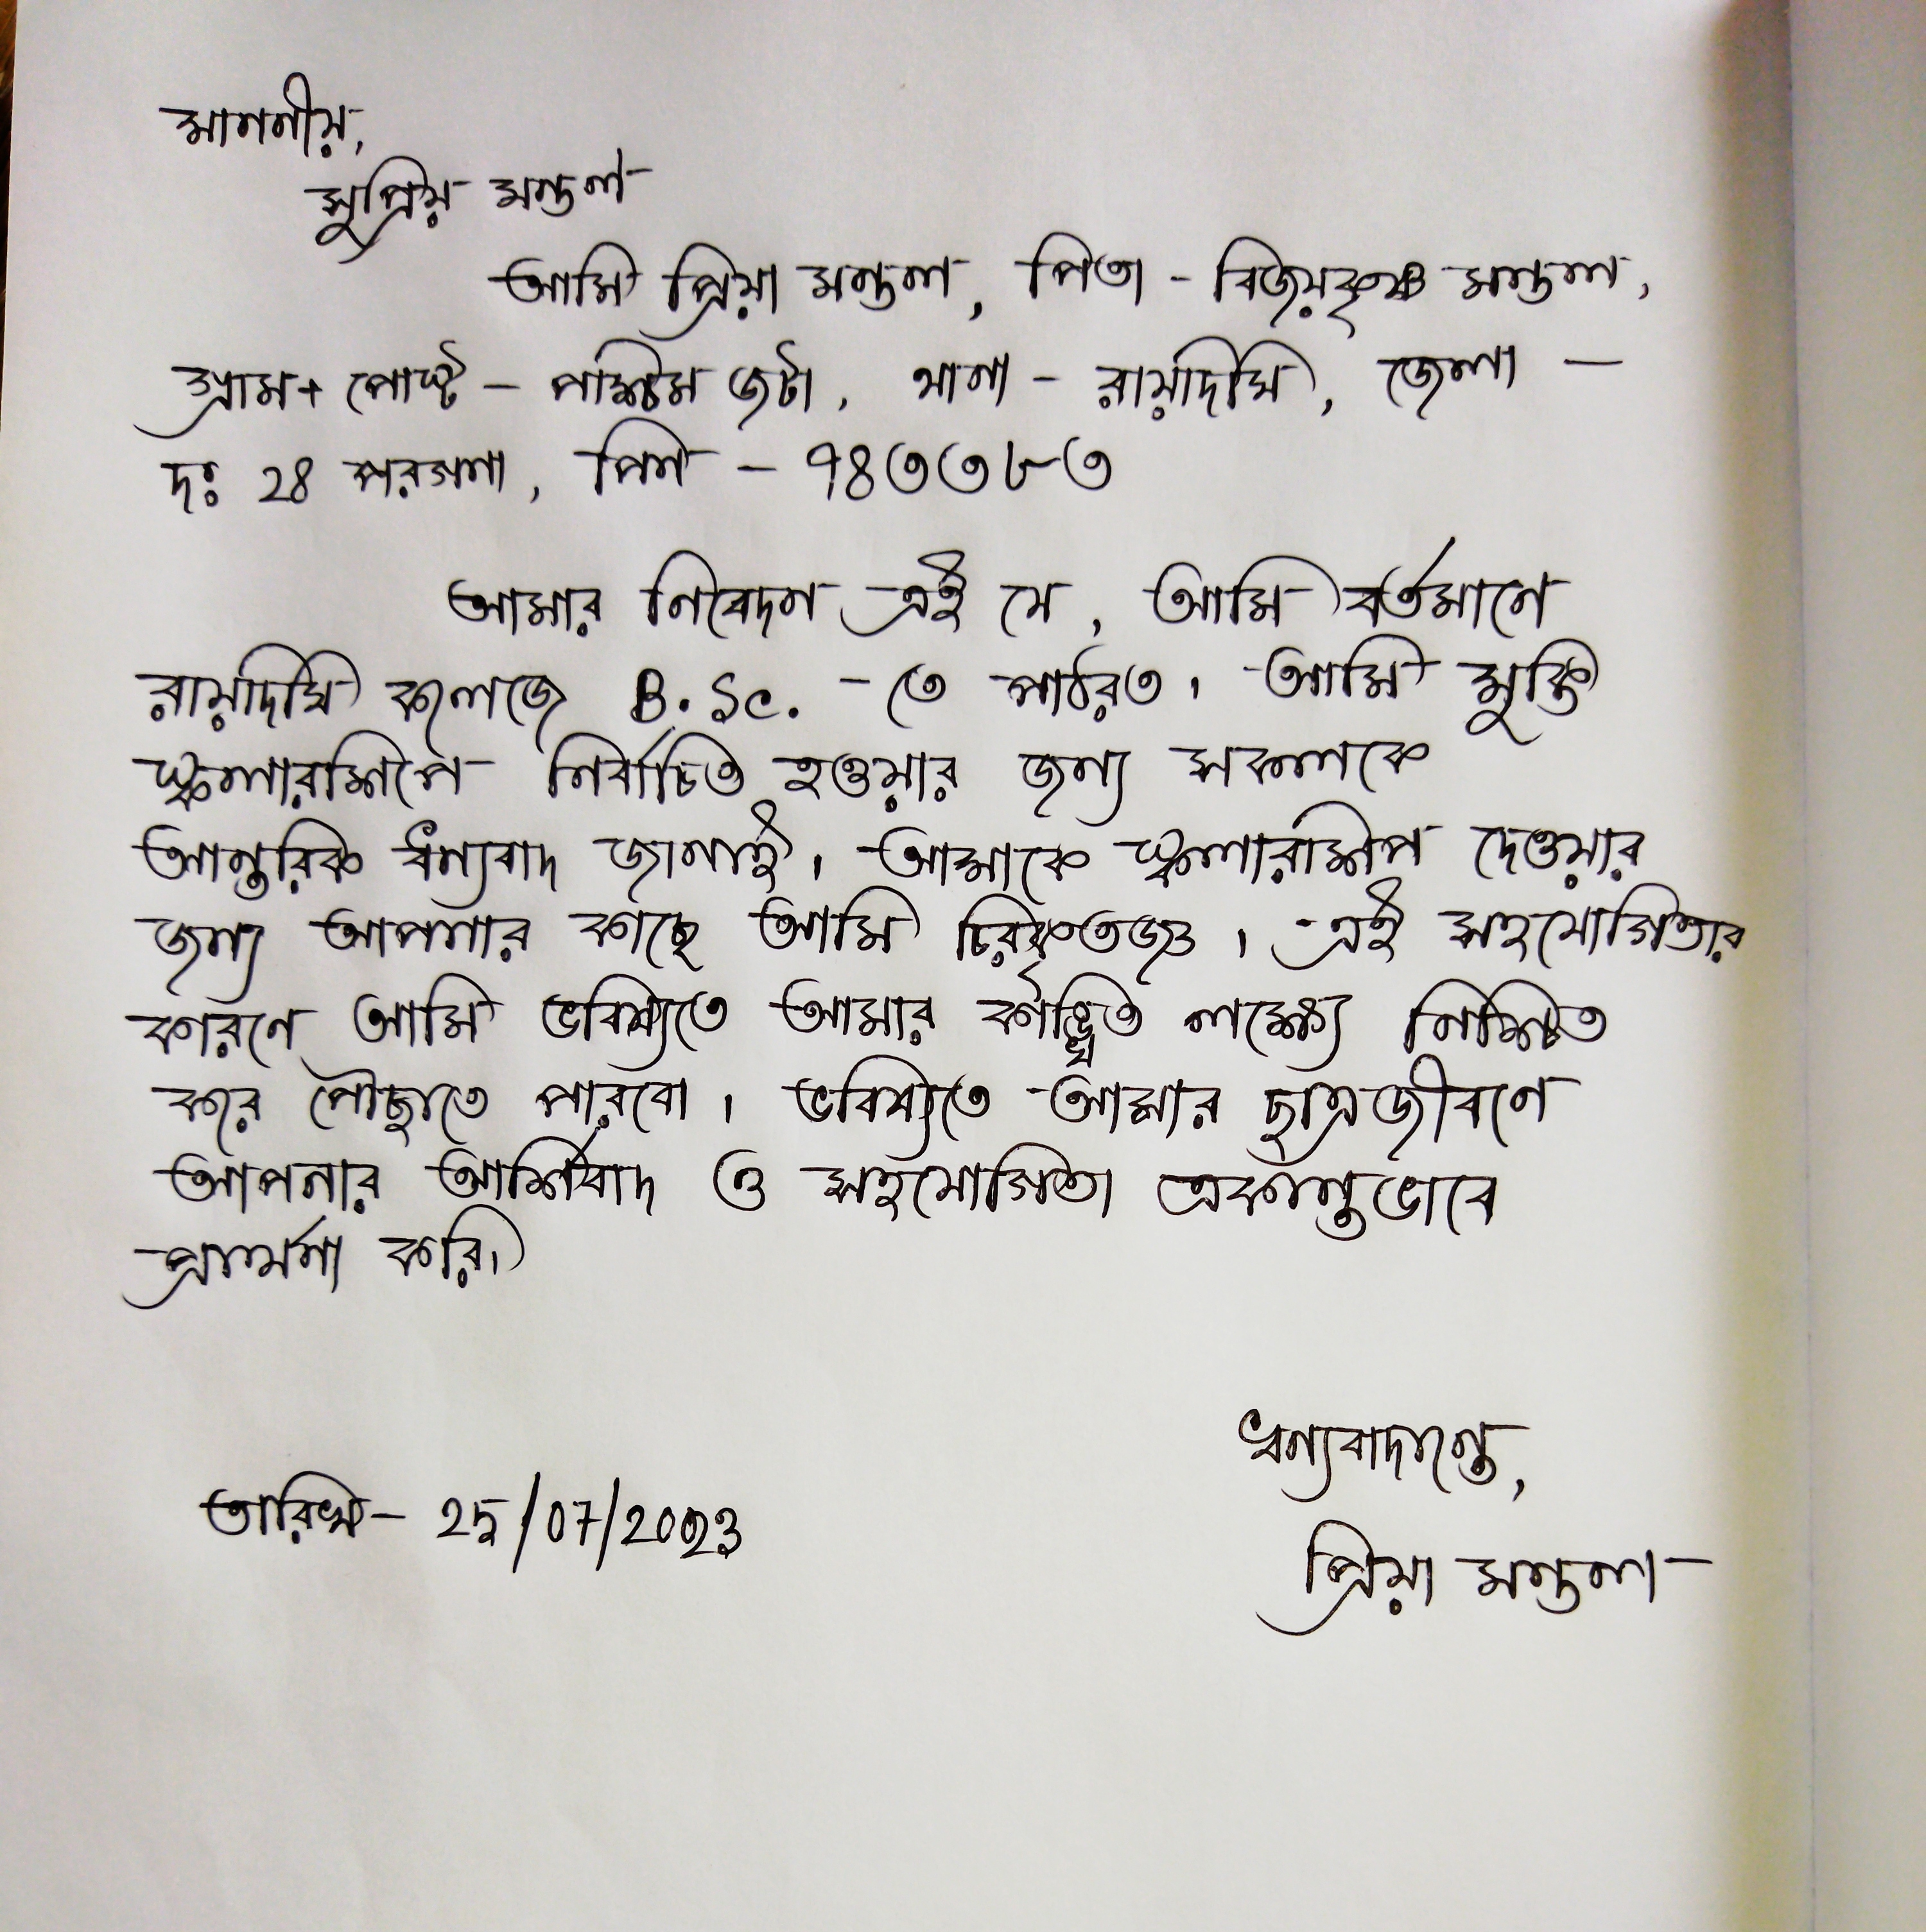 মাননীয়,
সুপ্রিয় মন্ডল
আমি প্রিয়া মন্ডল, পিতা - বিজয়কৃষ্ণ মন্ডল,
গ্রাম + পোষ্ট - পশ্চিম জটা, থানা - রায়দিঘি, জেলা -
দঃ 28 পরগনা, পিন - ৭৪৩৩৮৩
আমার নিবেদন এই যে, আমি বর্তমানে
রায়দিঘি কলেজে B.Sc. - তে পাঠরত। আমি মুক্তি
স্কলারশিপে নির্বাচিত হওয়ার জন্য সকলকে
আন্তরিক ধন্যবাদ জানাই। আমাকে স্কলারশিপ দেওয়ার
জন্য আপনার কাছে আমি চিরকৃতজ্ঞ। এই সহযোগিতার
কারনে আমি ভবিষ্যতে আমার কাঙ্খিত লক্ষ্যে নিশ্চিত
করে পৌছাতে পারবো। ভবিষ্যতে আমার ছাত্রজীবনে
আপনার আর্শিবাদ ও সহযোগিতা একান্তভাবে
প্রার্থনা করি।
ধন্যবাদান্তে,
তারিখ - 25/07/2023
প্রিয়া মন্ডল